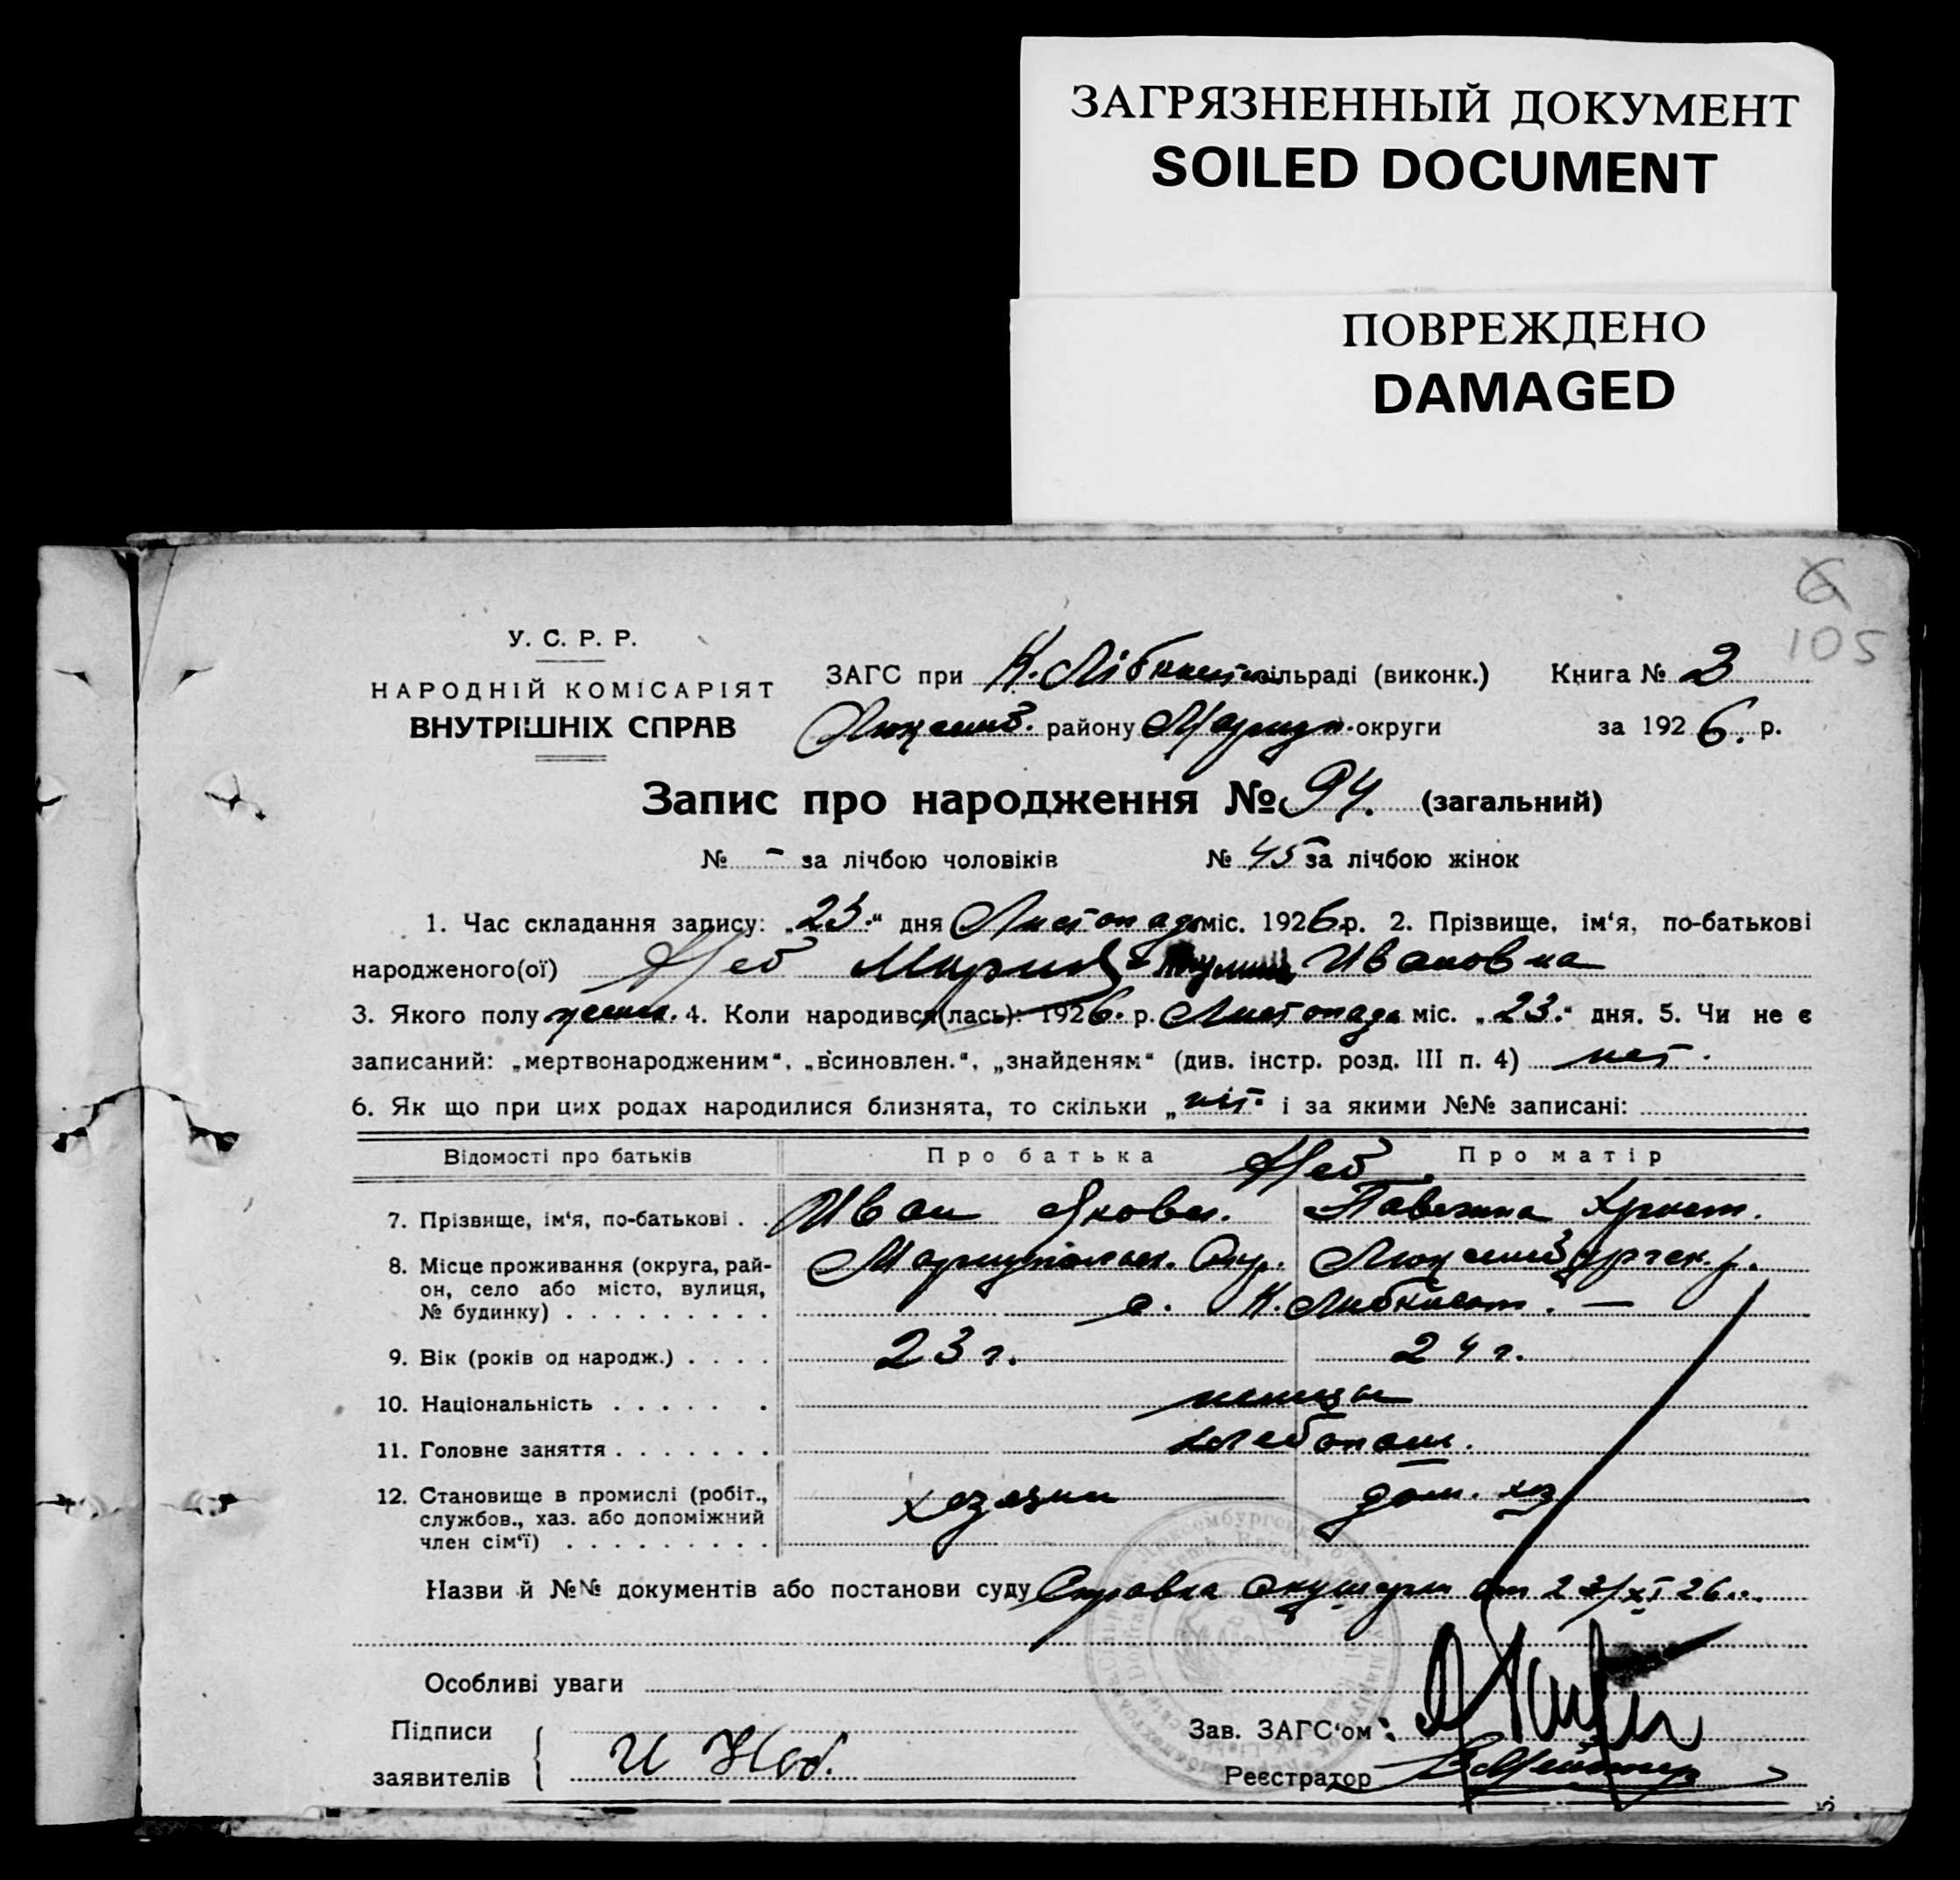 ЗАГРЯЗНЕННЫЙ ДОКУМЕНТ
SOILED DOCUMENT
ПОВРЕЖДЕНО
DAMAGED
105
У. С. Р. Р.
НАРОДНІЙ КОМІСАРІЯТ
ВНУТРІШНІХ СПРАВ
ЗАГС при К. Лібкнехт сільраді (виконк.) Книга № 2
району Мариуп. округи за 1926. р.
Запис про народження № 94. (загальний)
№ - за лічбою чоловіків № 45 за лічбою жінок
1. Час складання запису: „23.“ дня Листопада міс. 1926 р. 2. Прізвище, ім‘я, по-батькові
народженого(ої) Мария Ивановна
3. Якого полу женск. 4. Коли народився(лась): 1926. р. Листопада міс. „23.“ дня. 5. Чи не є
записаний: „мертвонародженим“, „всиновлен.“, „знайденям“ (див. інстр. розд. III п. 4) нет.
6. Як що при цих родах народилися близнята, то скільки „ніт“ і за якими №№ записані:
Відомості про батьків Про батька Про матір
7. Прізвище, ім‘я, по-батькові . . Иван Яковл. Павлина Христ.
8. Місце проживання (округа, рай-
он, село або місто, вулиця,
№ будинку) . . . . . . . . .
Мариупольск. Окр. Люксембургск. р.
с. К. Либкнехт. —
9. Вік (років од народж.) . . . . 23 г. 24 г.
10. Національність . . . . . . немцы
11. Головне заняття . . . . . . . хлебопаш.
12. Становище в промислі (робіт.,
службов., хаз. або допоміжний
член сім‘ї) . . . . . . . . .
хозяин дом. хоз
Назви й №№ документів або постанови суду Справка Акушерки от 23/XI 26 г.
Особливі уваги
Підписи
заявителів
Зав. ЗАГС‘ом
Реєстратор